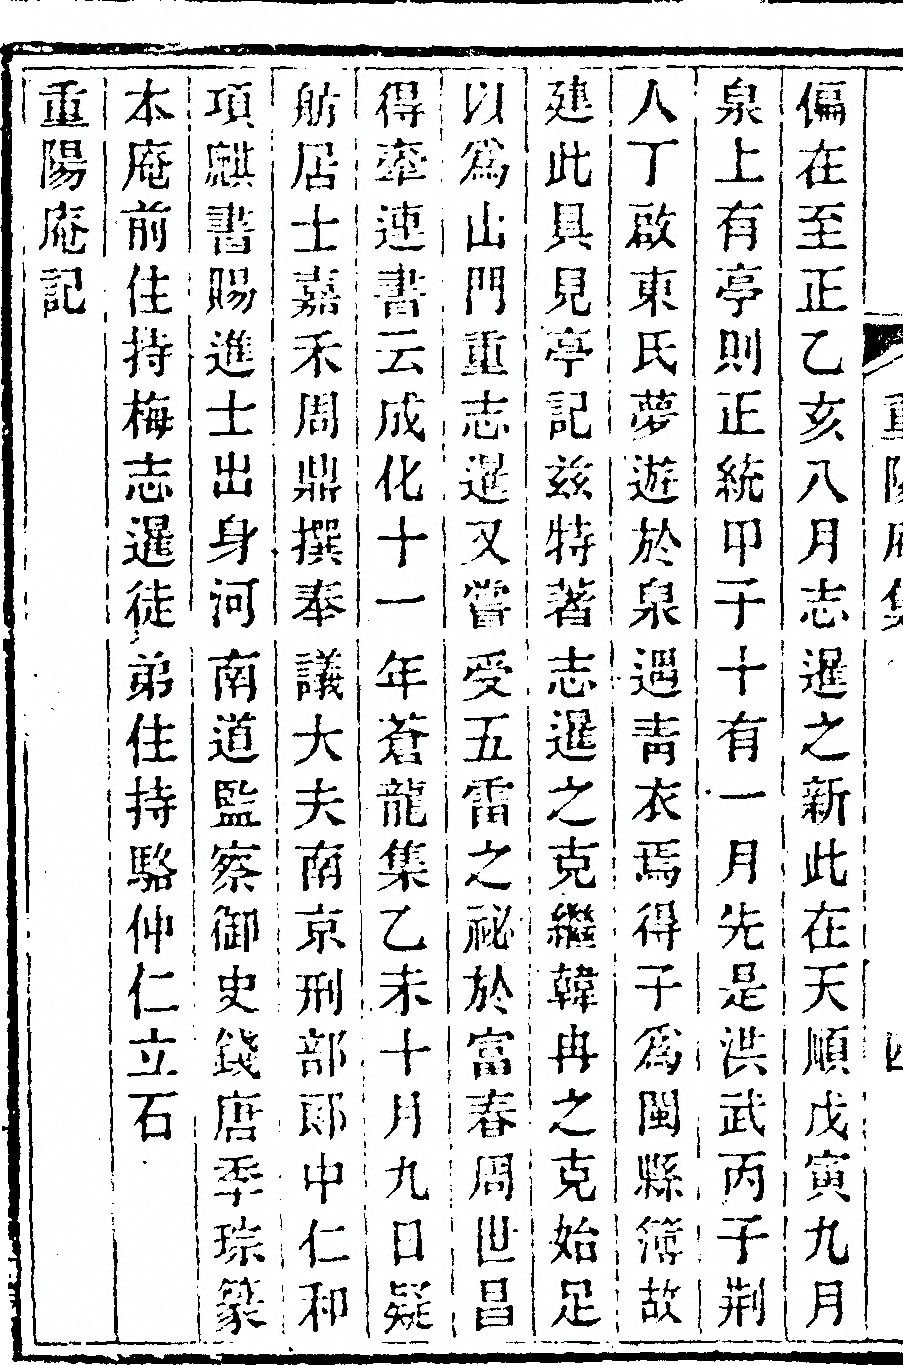 重陽庵集
四
偏在至正乙亥八月志暹之新此在天順戊寅九月
泉上有亭則正統甲子十有一月先是洪武丙子荆
人丁啟東氏夢遊於泉遇青衣焉得子為閩縣簿故
建此具見亭記兹特著志暹之克繼韓冉之克始足
以為山門重志暹又嘗受五雷之祕於富春周世昌
得牽連書云成化十一年蒼龍集乙未十月九日疑
舫居士嘉禾周鼎撰奉議大夫南京刑部郎中仁和
項麒書賜進士出身河南道監察御史錢唐季琮篆
本庵前住持梅志暹徒弟住持駱仲仁立石
重陽庵記